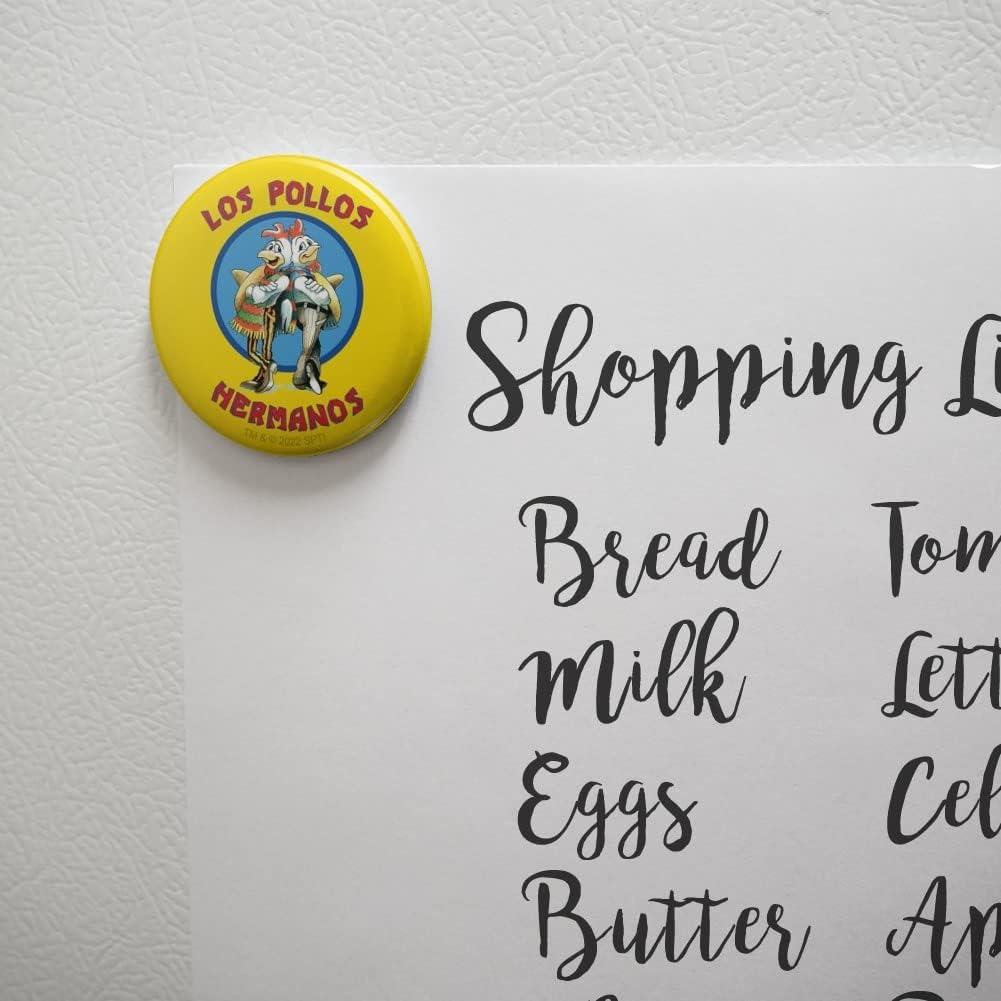 LOS POLLOS
HERMANOS
TM & © 2022 SPTI
Shopping Li
Bread Tom
Milk Lett
Eggs Cel
Butter Ap